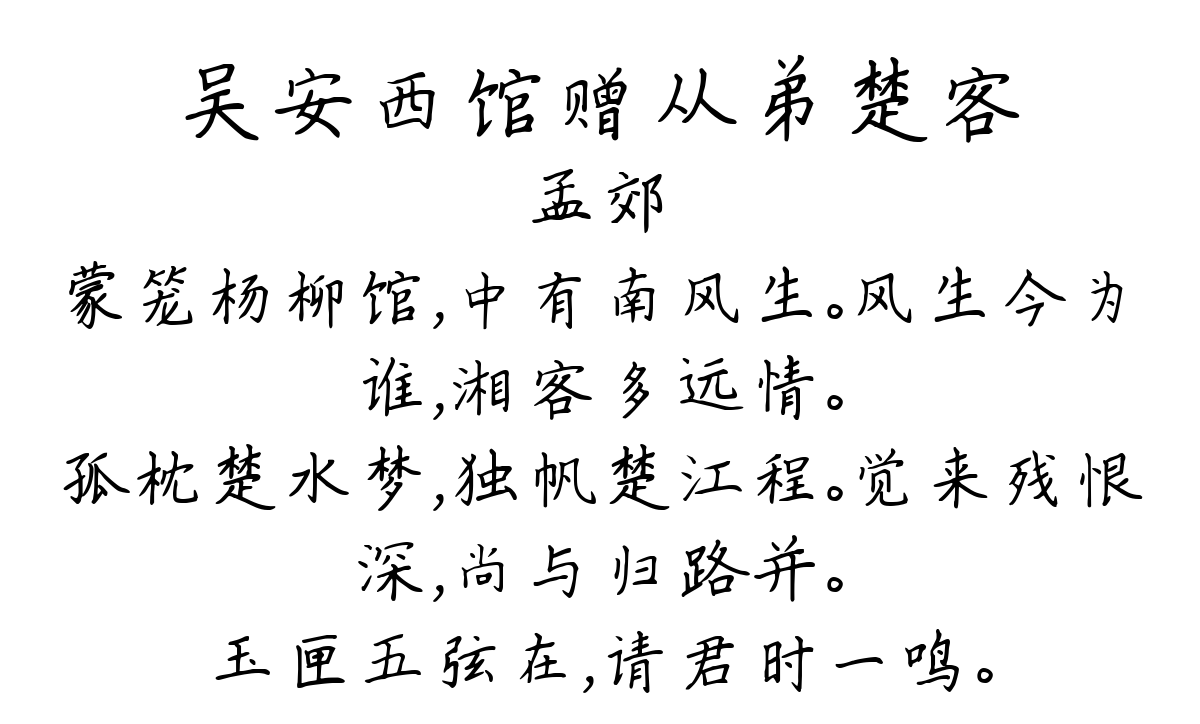 吴安西馆赠从弟楚客
孟郊
蒙笼杨柳馆,中有南风生。风生今为
谁,湘客多远情。
孤枕楚水梦,独帆楚江程。觉来残恨
深,尚与归路并。
玉匣五弦在,请君时一鸣。